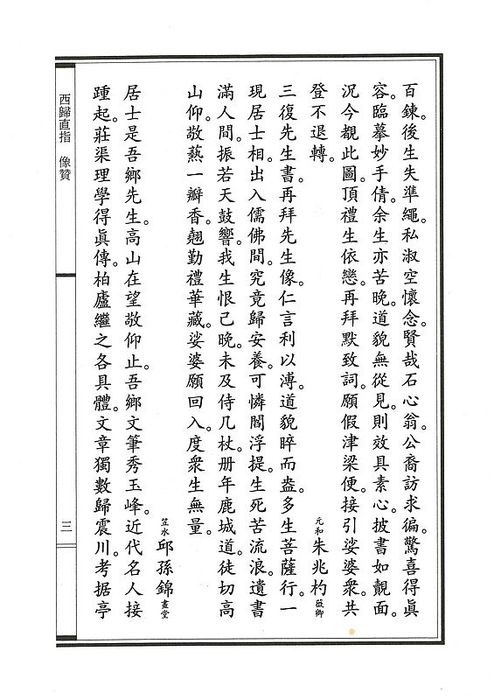 百鍊。後生失準繩。私淑空懷念。賢哉石心翁。公裔訪求徧。驚喜得眞
容。臨摹妙手倩。余生亦苦晚。道貌無從見。則效具素心。披書如覿面。
況今覩此圖。頂禮生依戀。再拜默致詞。願假津梁便。接引娑婆衆。共
登不退轉。
元和朱兆杓薇卿
三復先生書。再拜先生像。仁言利以溥。道貌睟而盎。多生菩薩行。一
現居士相。出入儒佛間。究竟歸安養。可憐閻浮提。生死苦流浪。遺書
滿人間。振若天鼓響。我生恨已晚。未及侍几杖。册年鹿城道。徒切高
山仰。敬爇一瓣香。翹勤禮華藏。娑婆願回入。度衆生無量。
笠水邱孫錦畫堂
居士是吾鄉先生。高山在望敬仰止。吾鄉文筆秀玉峰。近代名人接
踵起。莊渠理學得眞傳。柏廬繼之各具體。文章獨數歸震川。考据亭
西歸直指 像贊
三